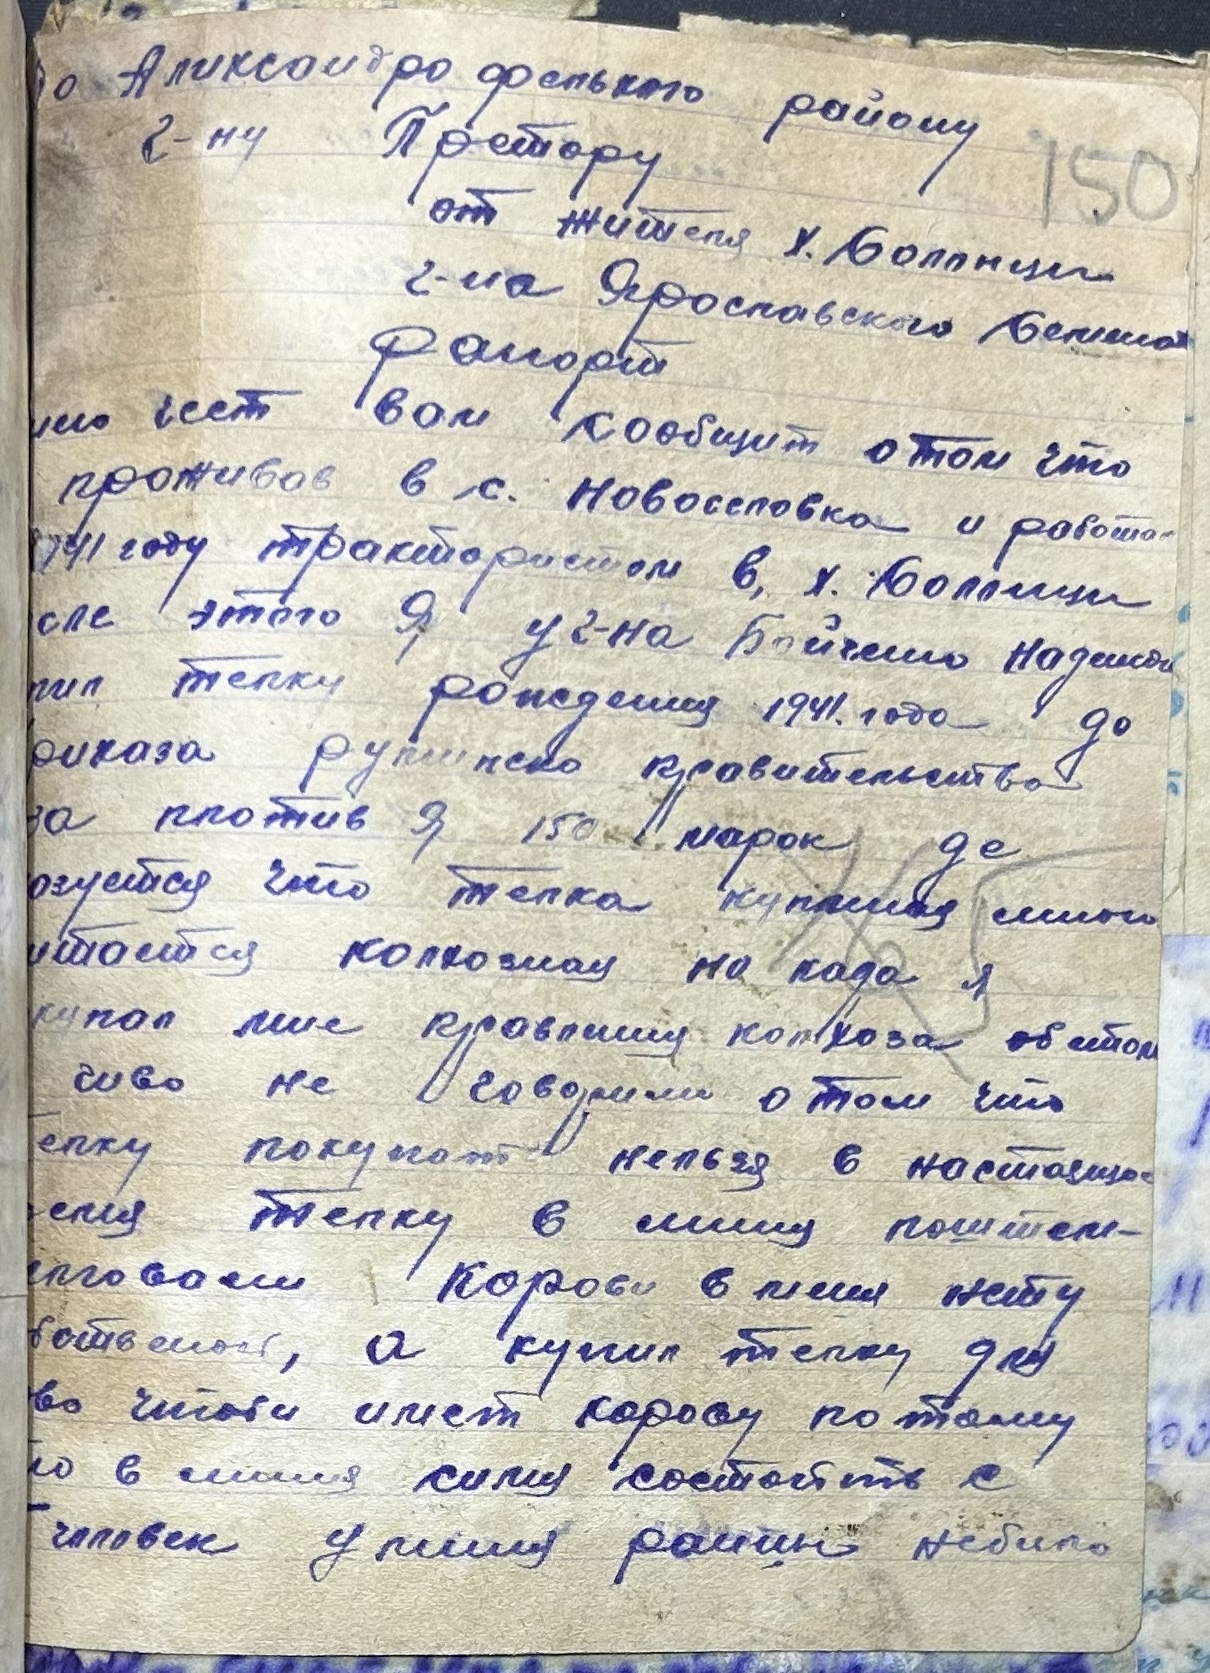 Аликсандрофелькго району
г-ну Претору
150
от жителя х. Боллнци
г-на Ярославского
Рапорт
чест вам сообщит отом что
проживав в с. Новоселовка и работа
1941 году трактористом в, х. Боллнци
сле этого Я у г-на Бойченко
пил телку рождения 1941. года до
риказа румынско правительства
за плотив Я 150 марок де
азуется что телка купленая мною
итается колхозная но када я
купал мне правления колхоза обетом
чиво не говорили отом что
елку покупат нельзя в настоящие
телку в миня
Корови в меня нету
а купил телку для
во чтоби имет корову потому
то в миня симя состоить с
человек у миня раншы небило